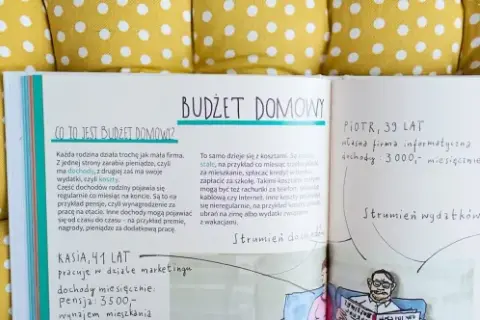 BUDŻET DOMOWY
CO TO JEST BUDŻET DOMOWY?
Każda rodzina działa trochę jak mała firma.
Z jednej strony zarabia pieniądze, czyli
ma dochody, z drugiej zaś ma swoje
wydatki, czyli koszty.
Część dochodów rodziny pojawia się
regularnie co miesiąc na koncie. Są to
na przykład pensje, czyli wynagrodzenie za
pracę na etacie. Inne dochody mogą pojawiać
się od czasu do czasu - na przykład premie,
nagrody, pieniądze za dodatkową pracę.
To samo dzieje się z kosztami. Są koszty
stałe, na przykład co miesiąc trzeba zapłacić
za mieszkanie, spłacać kredyt w banku,
zapłacić za szkołę. Takimi kosztami
mogą być też rachunki za telefon,
kablową czy Internet. Inne koszty
się nieregularnie, na przykład
ubrań na zimę albo wydatki związane
z wakacjami.
Strumień dochodów
KASIA, 41 LAT
pracuje w dziale marketingu
dochody miesięcznie:
pensja: 3500,-
wynajem mieszkania
PIOTR, 39 LAT
własna firma informatyczna
dochody: 3000,- miesięcznie
Strumień wydatków